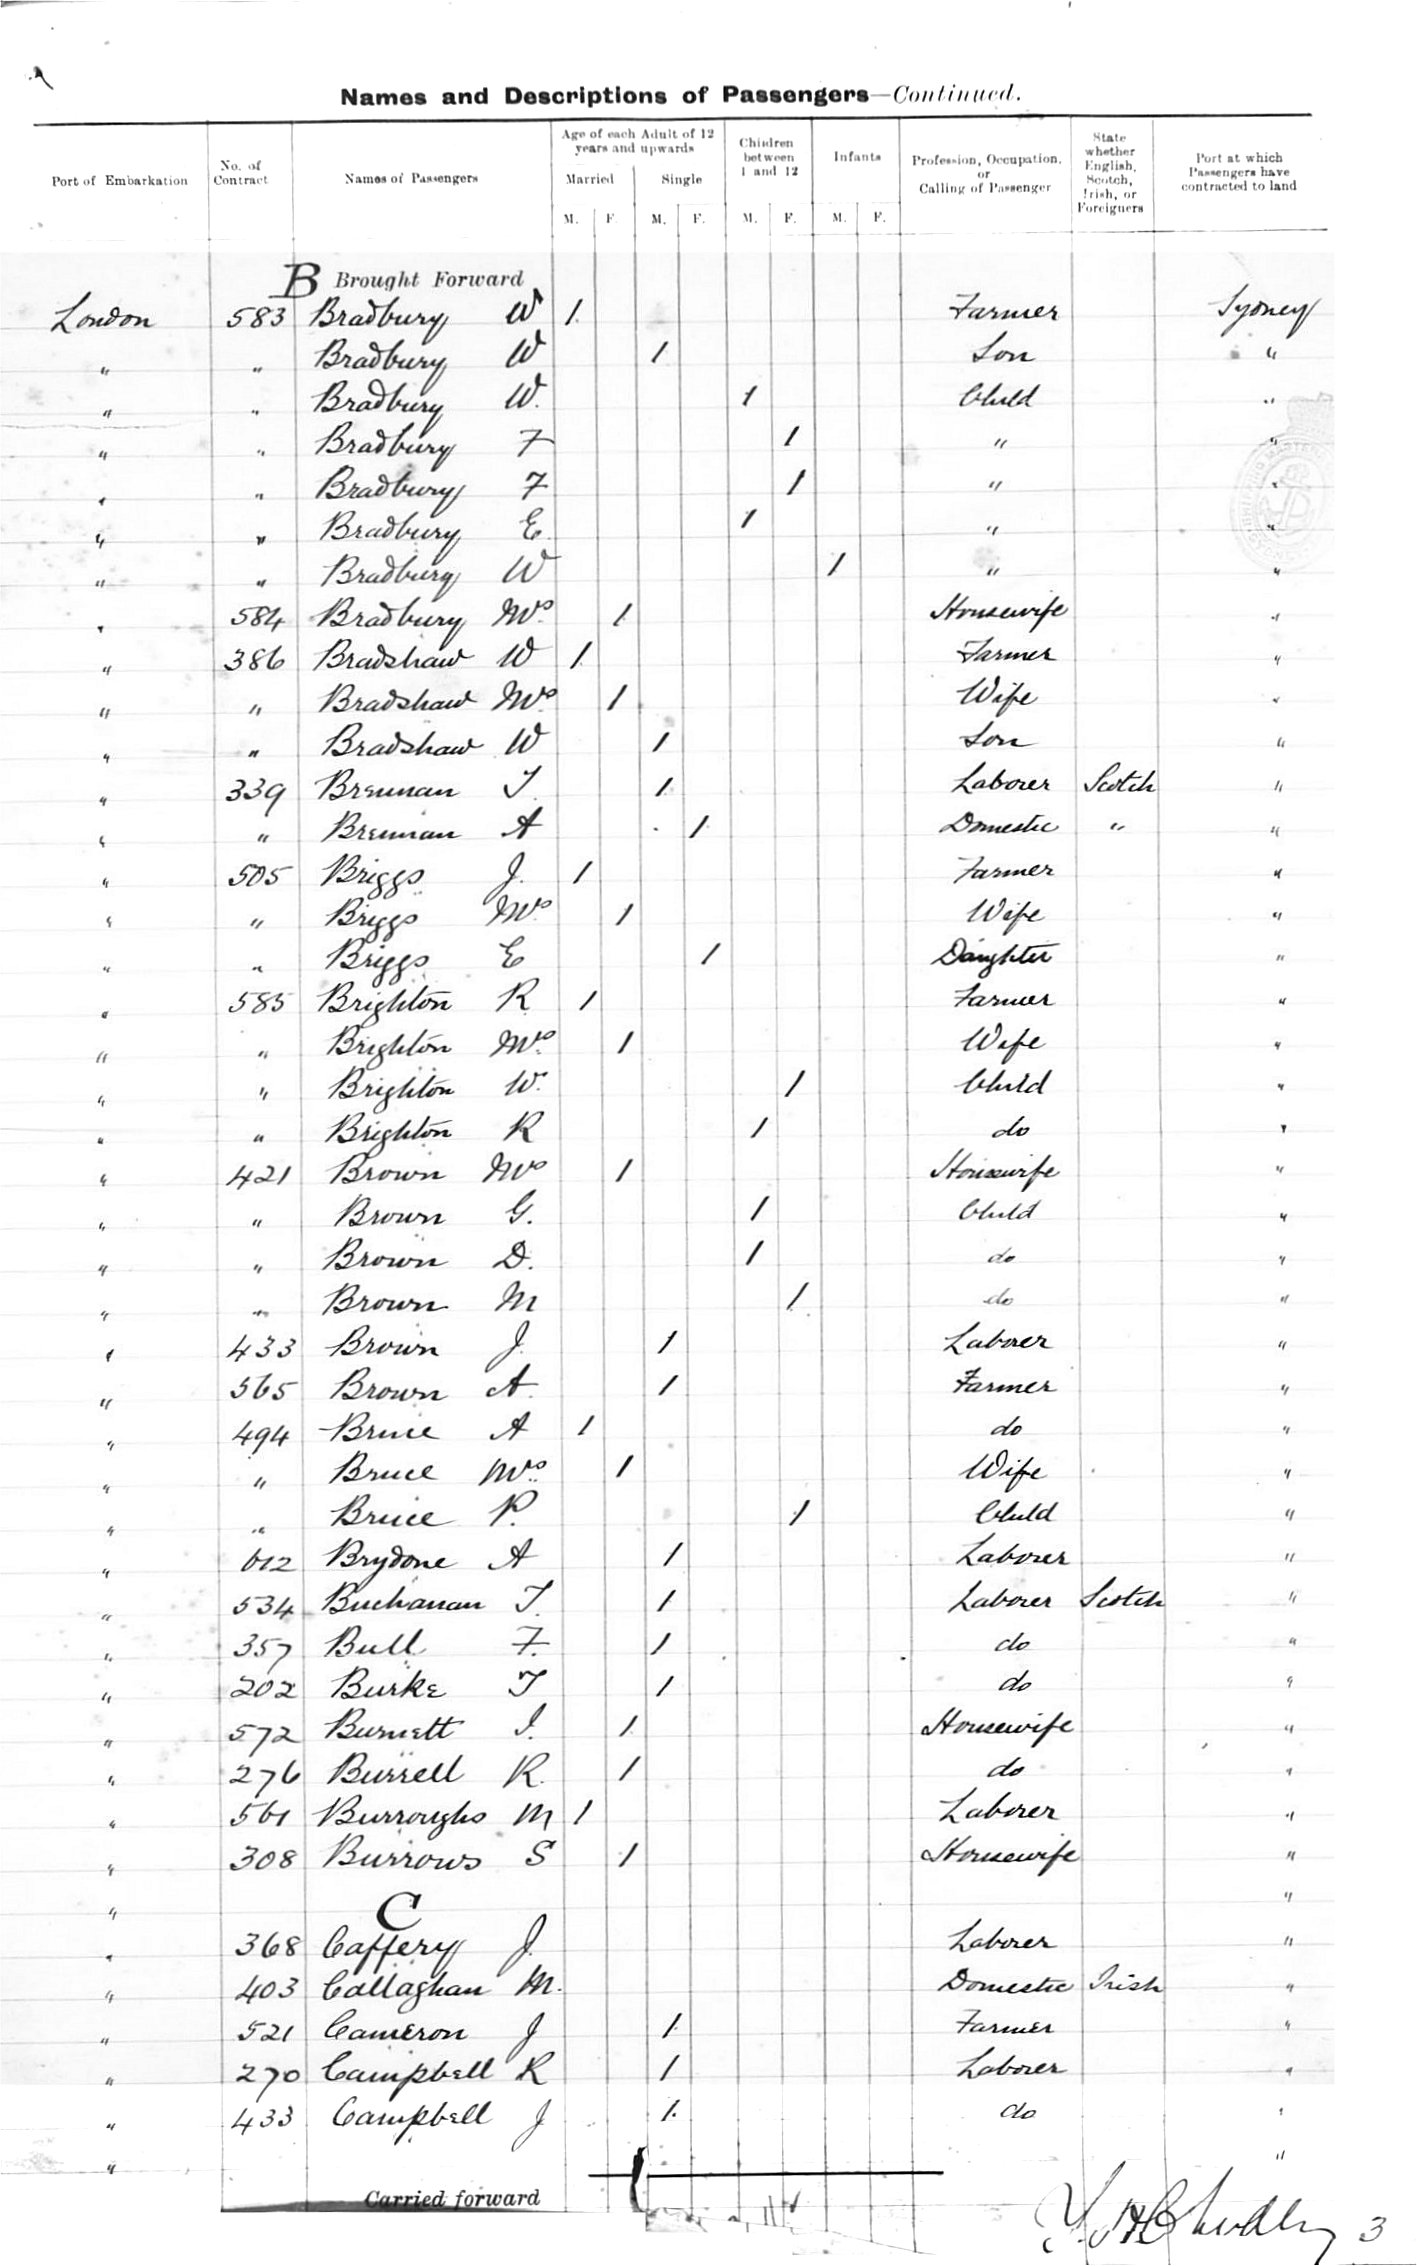 Names and Descriptions of Passengers—Continued.
Port of Embarkation | No. of Contract | Names of Passengers | Age of each Adult of 12 years and upwards | Children between 1 and 12 | Infants | Profession, Occupation, or Calling of Passenger | State whether English, Scotch, Irish, or Foreigners | Port at which Passengers have contracted to land
Married | Single
M. F. M. F. M. F. M. F.
B Brought Forward
London 583 Bradbury W 1 Farmer Sydney
" " Bradbury W 1 Son "
" " Bradbury W. 1 Child "
" " Bradbury F 1 " "
" " Bradbury F 1 " "
" " Bradbury E. 1 " "
" " Bradbury W 1 " "
" 584 Bradbury Mrs. 1 Housewife "
" 386 Bradshaw W 1 Farmer "
" " Bradshaw Mrs. 1 Wife "
" " Bradshaw W 1 Son "
" 339 Brennan T. 1 Laborer Scotch "
" " Brennan A 1 Domestic " "
" 505 Briggs J. 1 Farmer "
" " Briggs Mrs. 1 Wife "
" " Briggs E 1 Daughter "
" 585 Brighton R 1 Farmer "
" " Brighton Mrs. 1 Wife "
" " Brighton W. 1 Child "
" " Brighton R 1 do "
" 421 Brown Mrs 1 Housewife "
" " Brown G. 1 Child "
" " Brown D. 1 do "
" " Brown M 1 do "
" 433 Brown J. 1 Laborer "
" 565 Brown A. 1 Farmer "
" 494 Bruce A 1 do "
" " Bruce Mrs. 1 Wife "
" " Bruce P. 1 Child "
" 612 Brydone A 1 Laborer "
" 534 Buchanan T. 1 Laborer Scotch "
" 357 Bull F. 1 do "
" 202 Burke T 1 do "
" 572 Burnett I. 1 Housewife "
" 276 Burrell R. 1 do "
" 561 Burroughs M 1 Laborer "
" 308 Burrows S 1 Housewife "
" C "
" 368 Caffery J Laborer "
" 403 Callaghan M. Domestic Irish "
" 521 Cameron J 1 Farmer "
" 270 Campbell R 1 Laborer "
" 433 Campbell J 1 do "
" "
Carried forward
3